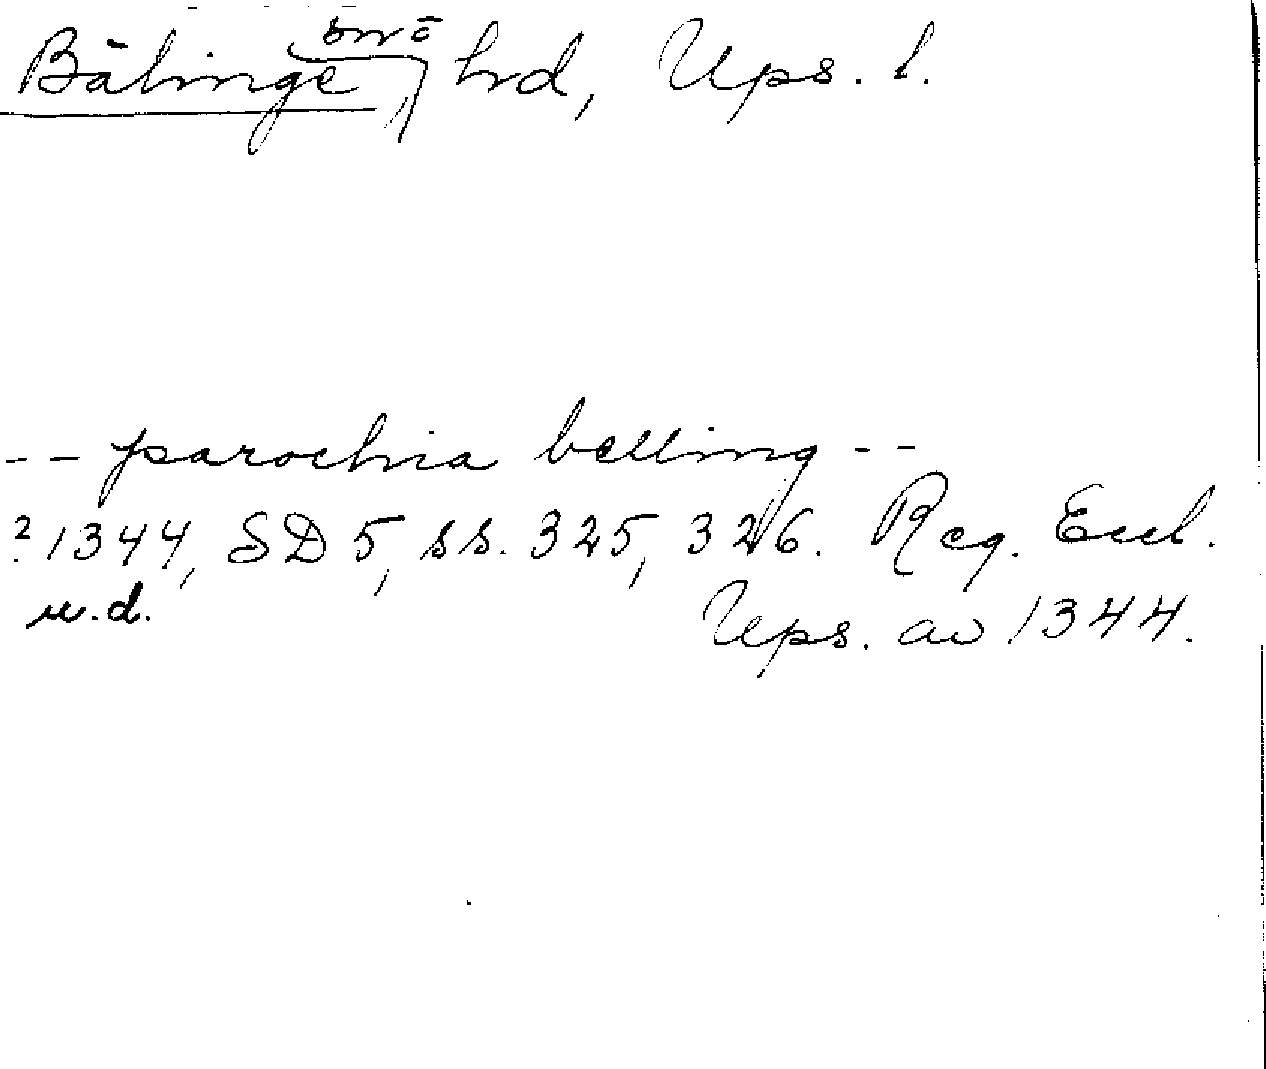 Bälinge, snā hrd, Ups. l.
-- parochia belling --
? 1344, SD 5, ss. 325, 326. Reg. Eccl.
u.d. Ups. av 1344.